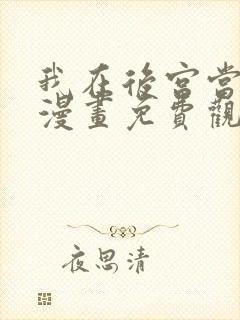 我在後宮當
漫畫免費觀
夜思清